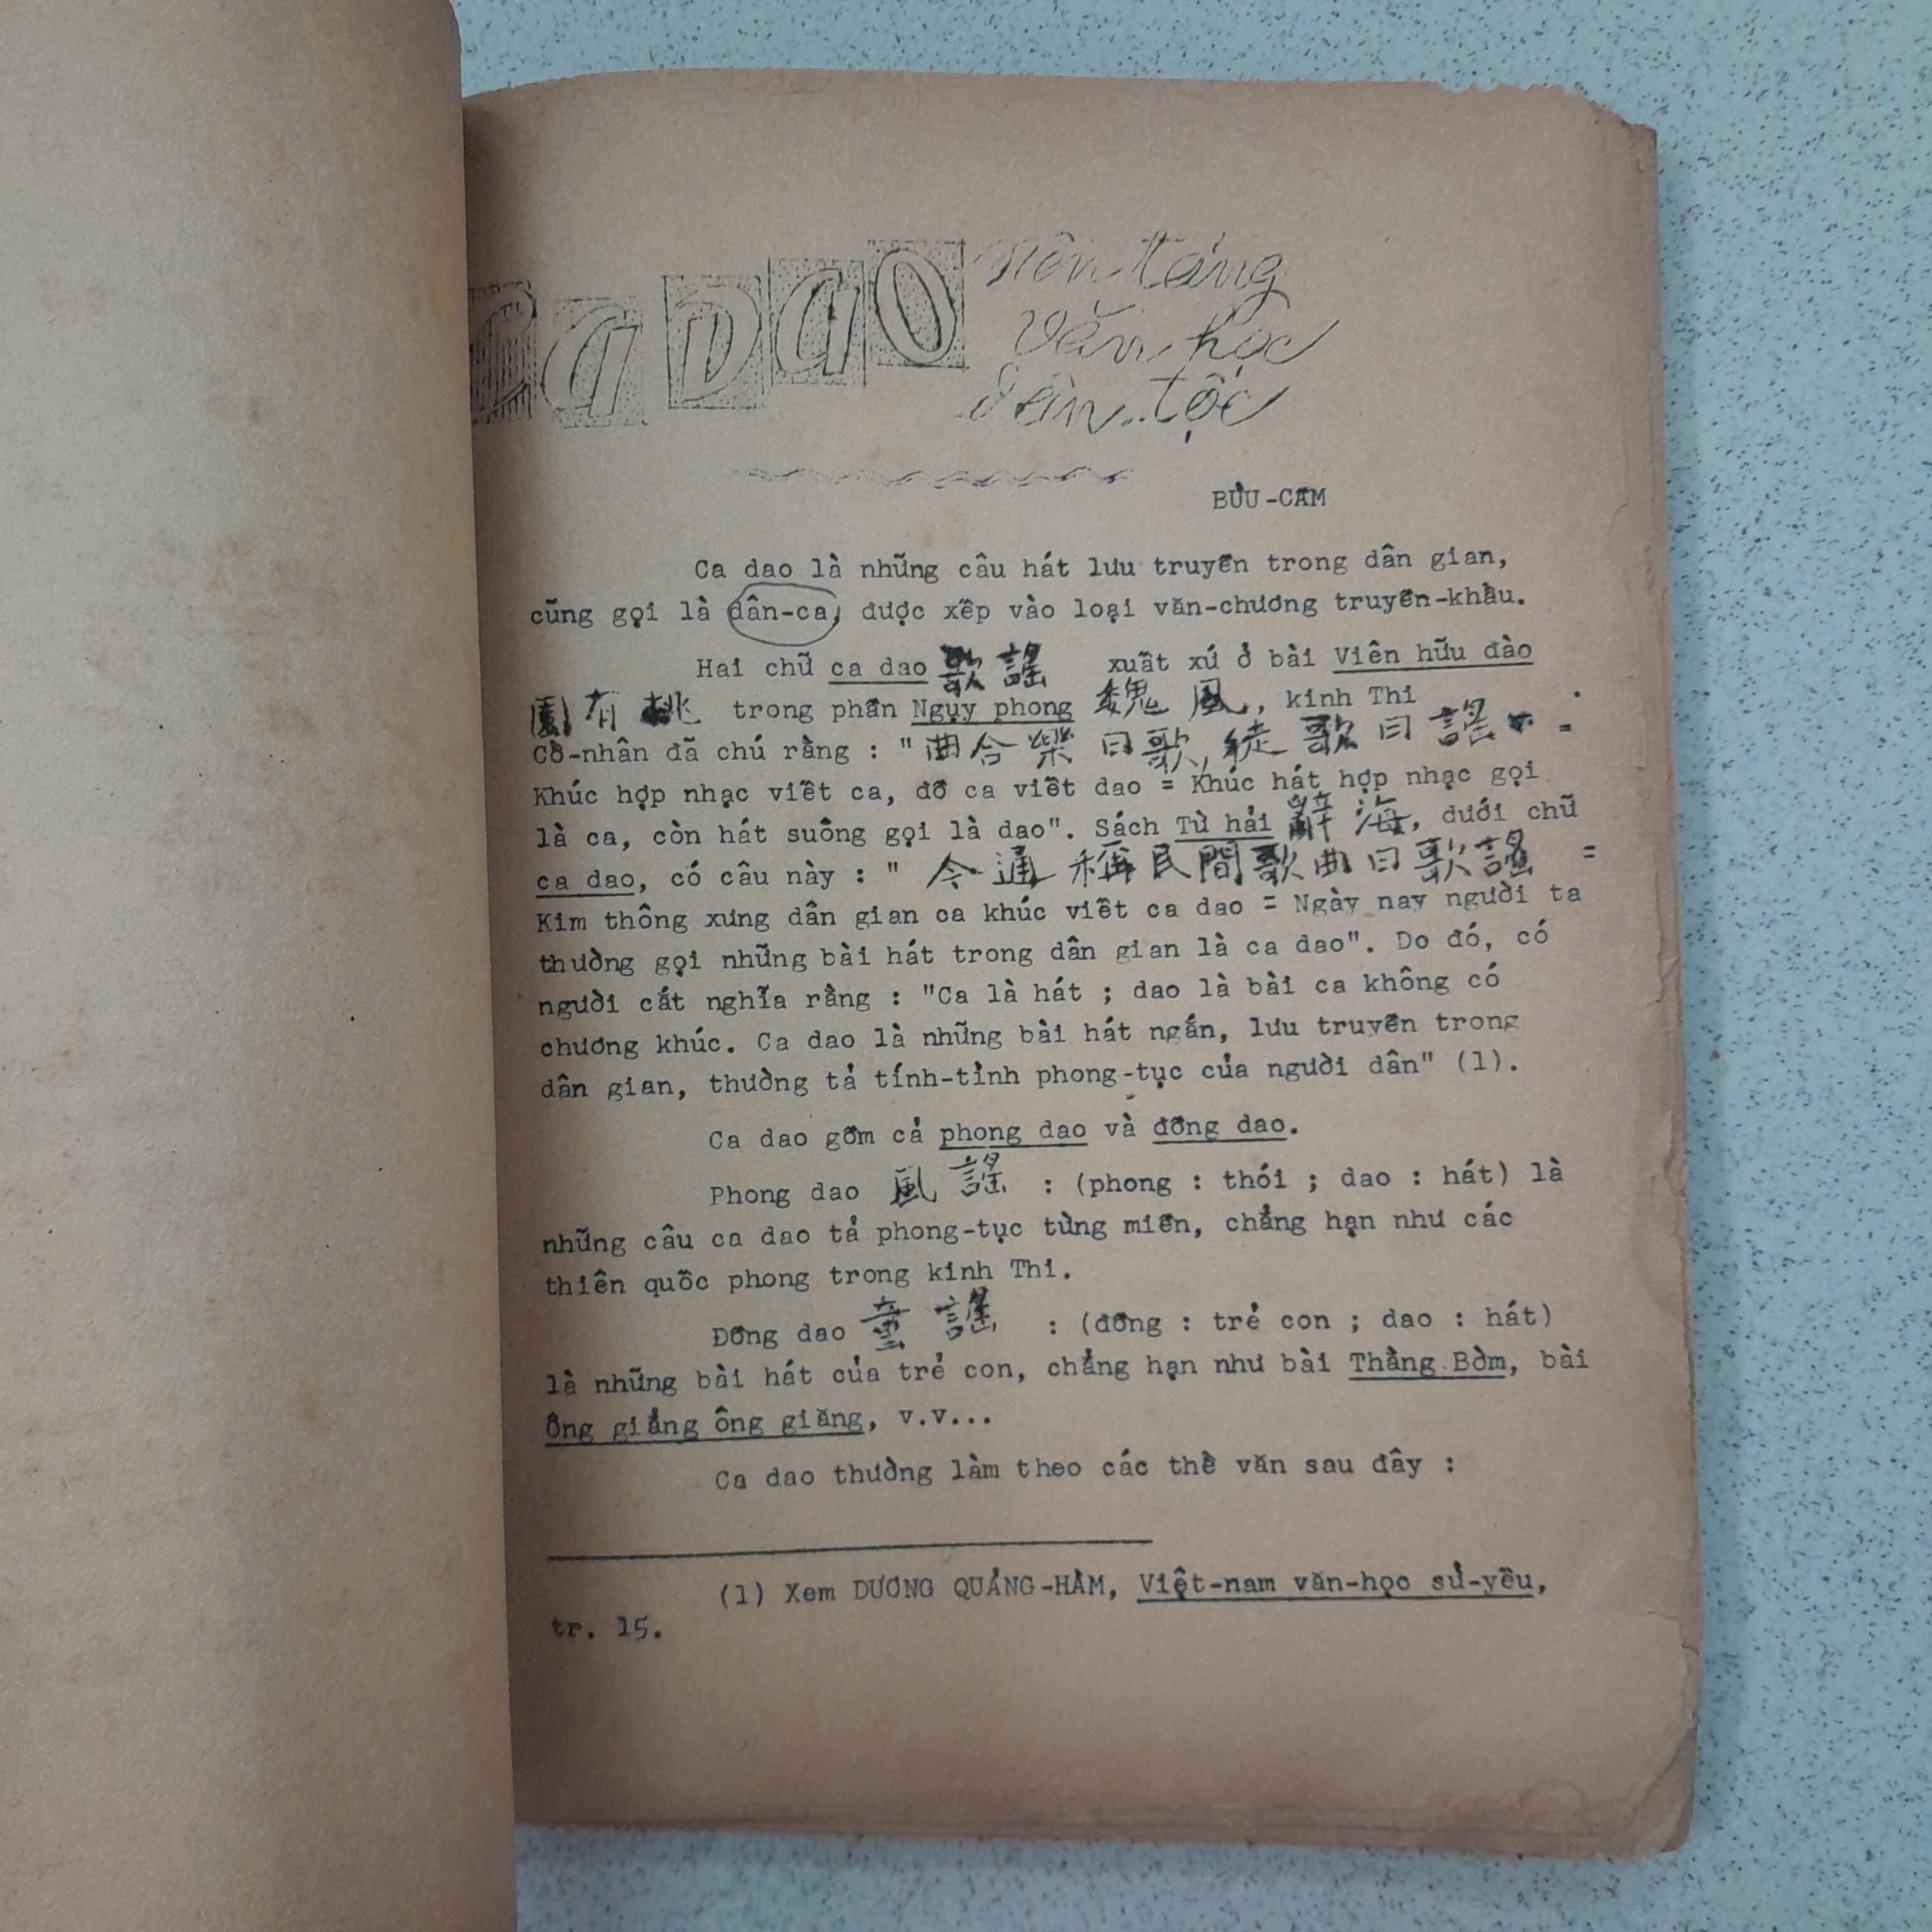 Ca Dao nền tảng
văn học
dân tộc
BỬU-CẦM
Ca dao là những câu hát lưu truyền trong dân gian,
cũng gọi là dân-ca, được xếp vào loại văn-chương truyền-khẩu.
Hai chữ ca dao 歌謠 xuất xứ ở bài Viên hữu đào
園有桃 trong phần Ngụy phong 魏風, kinh Thi
Cổ-nhân đã chú rằng : "曲合樂曰歌, 徒歌曰謠" =
Khúc hợp nhạc viết ca, đồ ca viết dao = Khúc hát hợp nhạc gọi
là ca, còn hát suông gọi là dao". Sách Từ hải 辭海, dưới chữ
ca dao, có câu này : " 今通稱民間歌曲曰歌謠 =
Kim thông xưng dân gian ca khúc viết ca dao = Ngày nay người ta
thường gọi những bài hát trong dân gian là ca dao". Do đó, có
người cắt nghĩa rằng : "Ca là hát ; dao là bài ca không có
chương khúc. Ca dao là những bài hát ngắn, lưu truyền trong
dân gian, thường tả tính-tình phong-tục của người dân" (1).
Ca dao gồm cả phong dao và đồng dao.
Phong dao 風謠 : (phong : thói ; dao : hát) là
những câu ca dao tả phong-tục từng miền, chẳng hạn như các
thiên quốc phong trong kinh Thi.
Đồng dao 童謠 : (đồng : trẻ con ; dao : hát)
là những bài hát của trẻ con, chẳng hạn như bài Thằng Bờm, bài
Ông giẳng ông giăng, v.v...
Ca dao thường làm theo các thể văn sau đây :
(1) Xem DƯƠNG QUẢNG-HÀM, Việt-nam văn-học sử-yếu,
tr. 15.